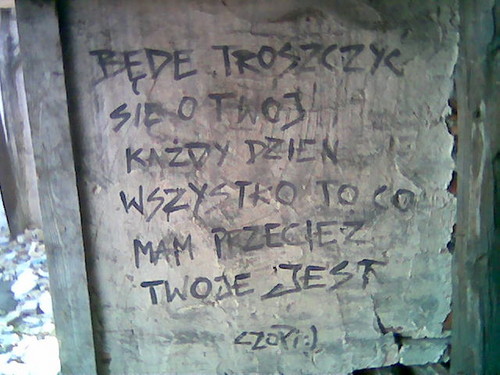 BĘDE TROSZCZYĆ
SIĘ O TWÓJ
KAŻDY DZIEŃ
WSZYSTKO TO CO
MAM PRZECIEŻ
TWOJE JEST
CZORI:)